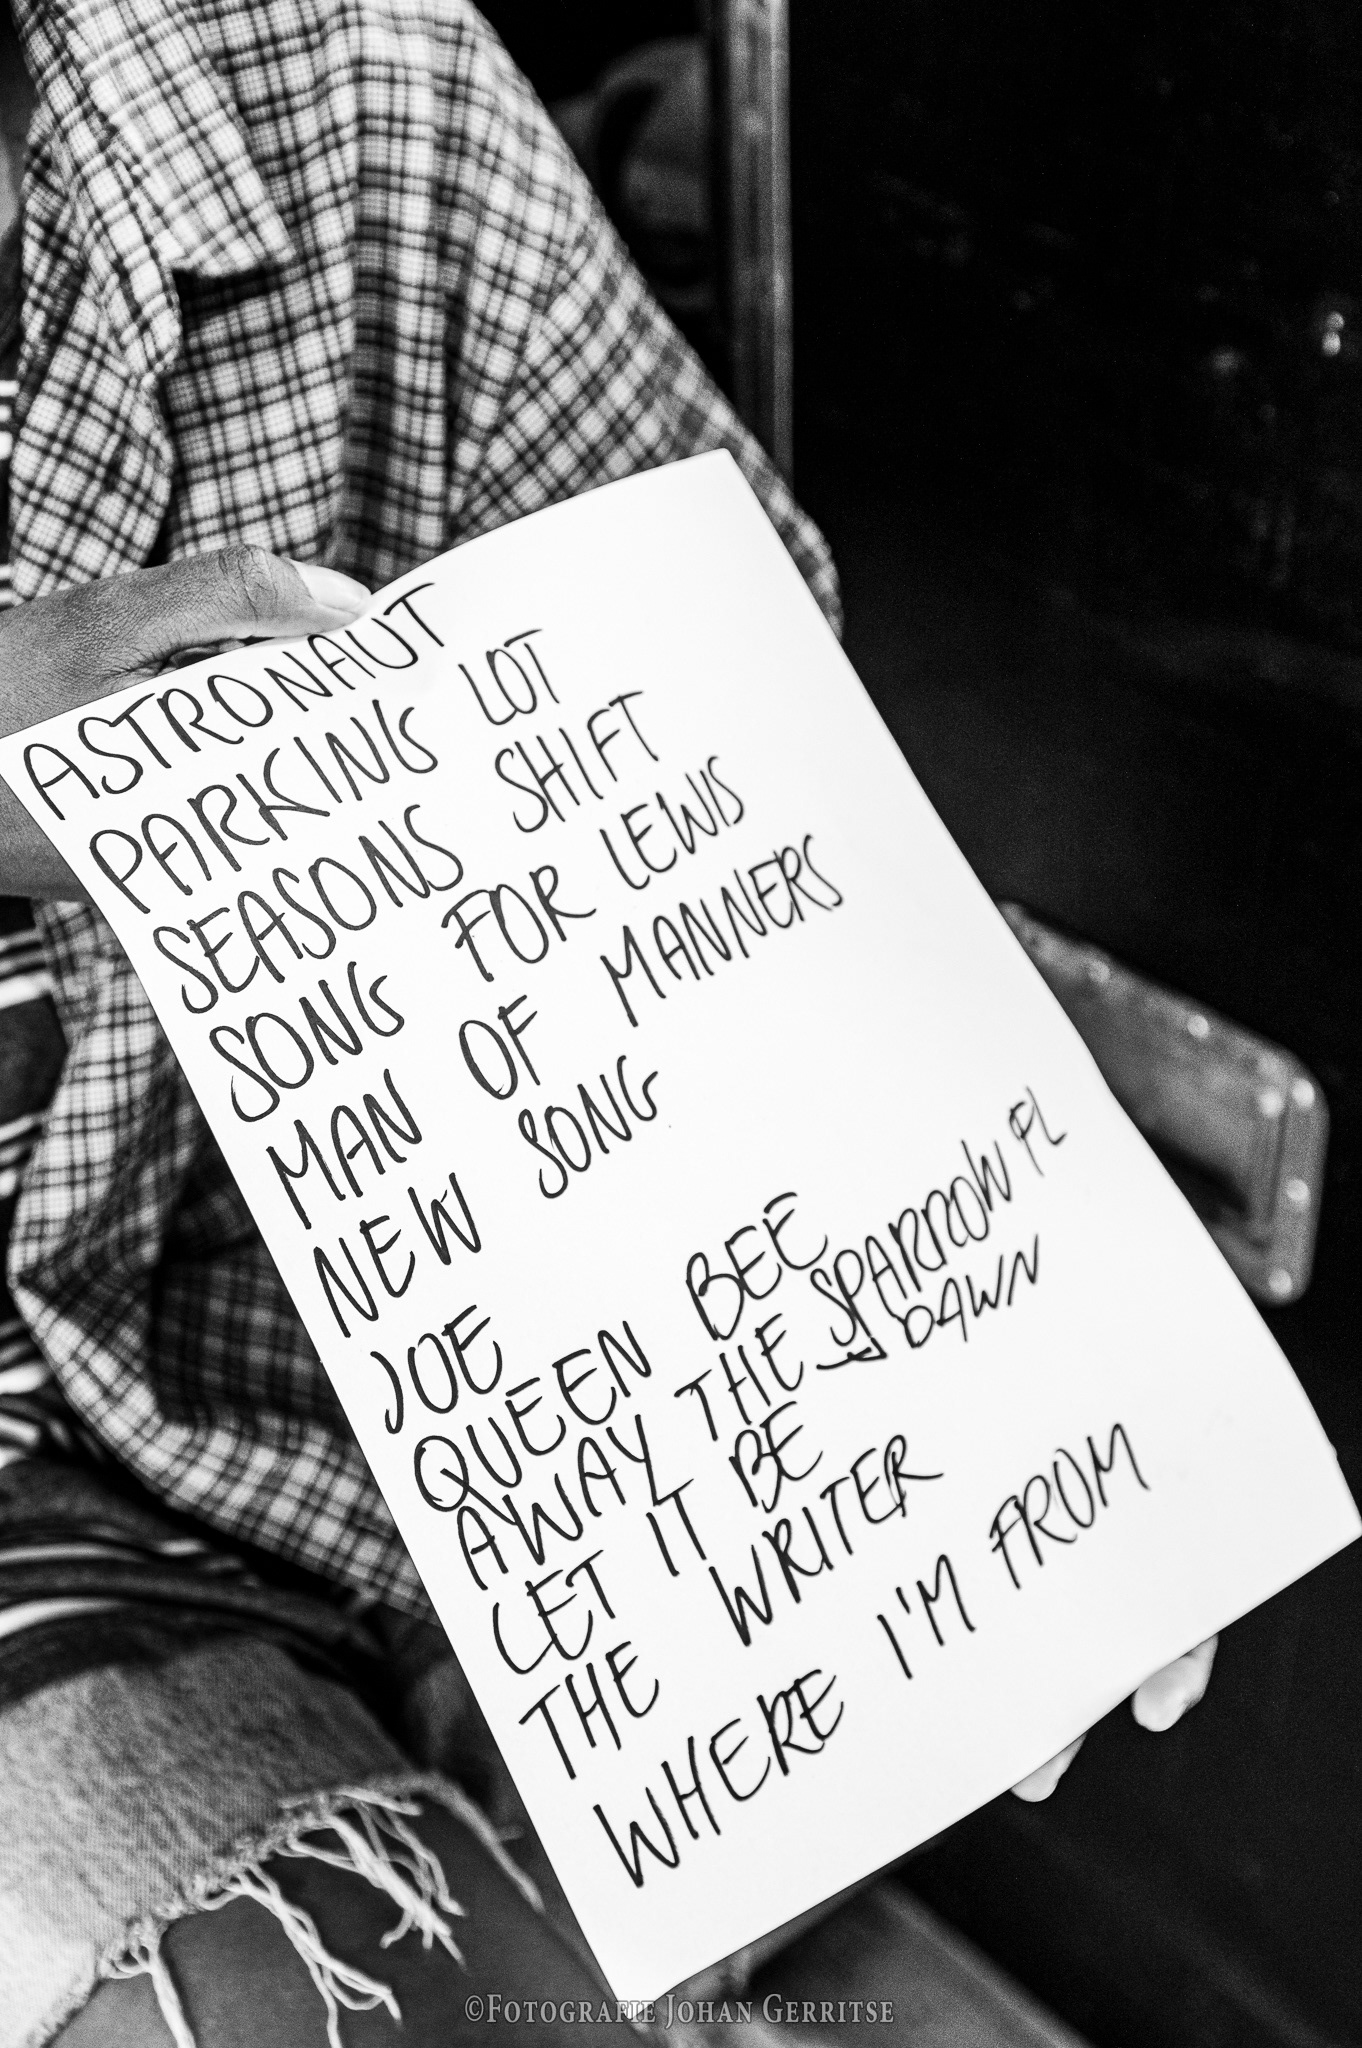 ASTRONAUT
PARKING LOT
SEASONS SHIFT
SONG FOR LEWIS
MAN OF MANNERS
NEW SONG
JOE
QUEEN BEE
AWAY THE SPARROW FL
DAWN
LET IT BE
THE WRITER
WHERE I'M FROM
©FOTOGRAFIE JOHAN GERRITSE